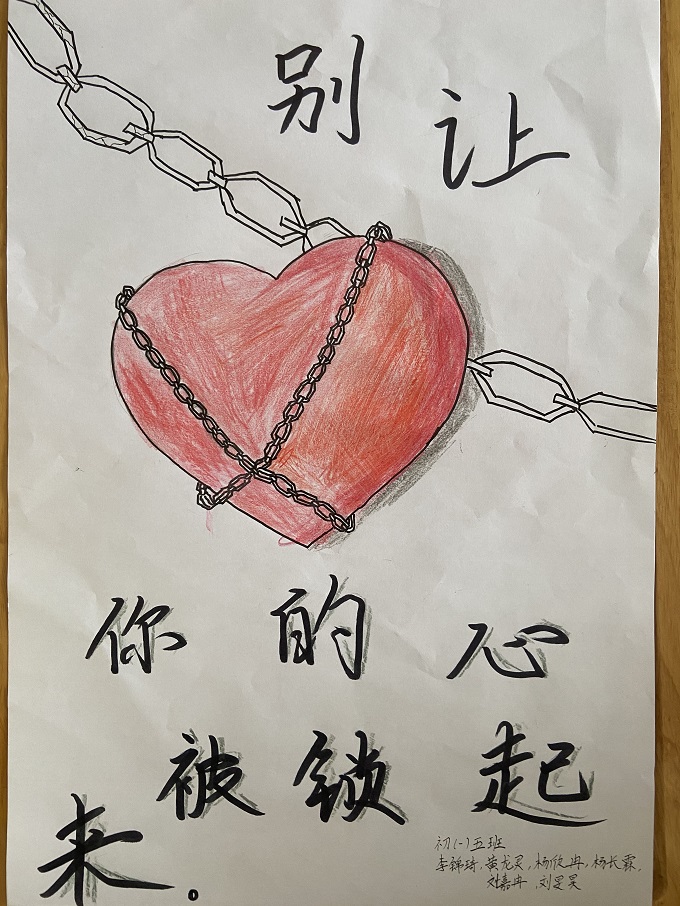 别让
你的心
被锁起
来。
初(一)五班
李锦琦,黄龙灵,杨欣冉,杨长霖,
刘嘉冉,刘旻昊